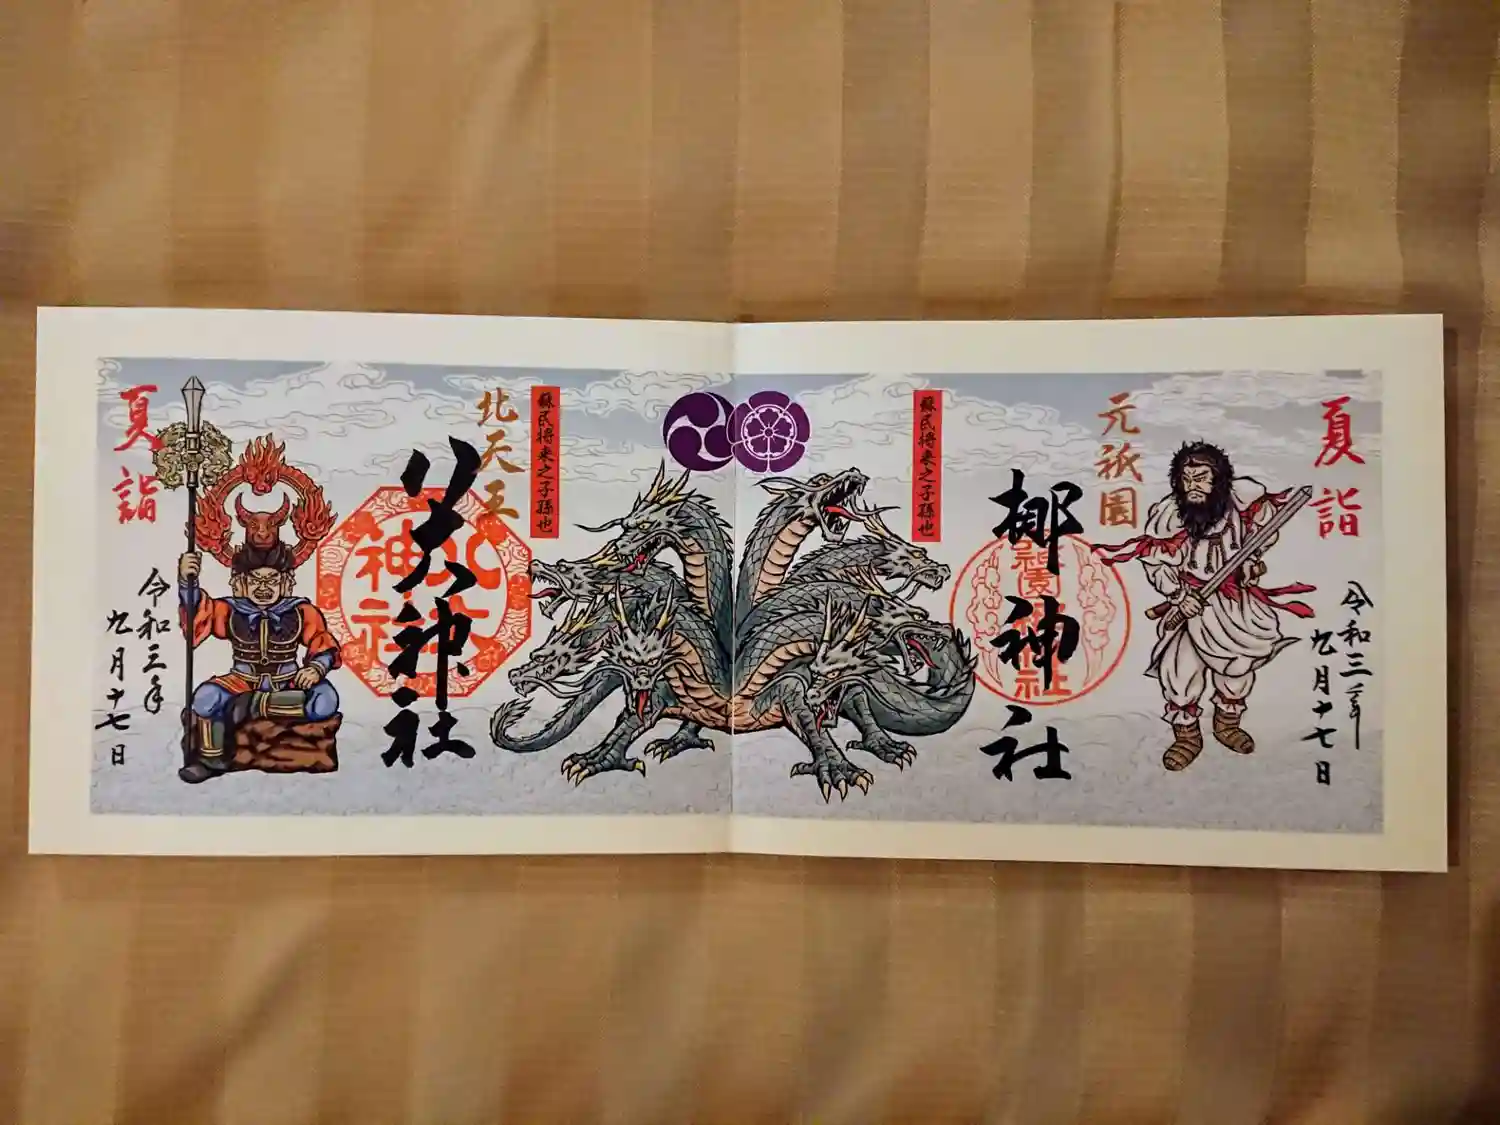 夏詣
令和三年
九月十七日
元祇園
梛神社
蘇民将来之子孫也
蘇民将来之子孫也
北天王
八大神社
八大
神社
令和三年
九月十七日
夏詣